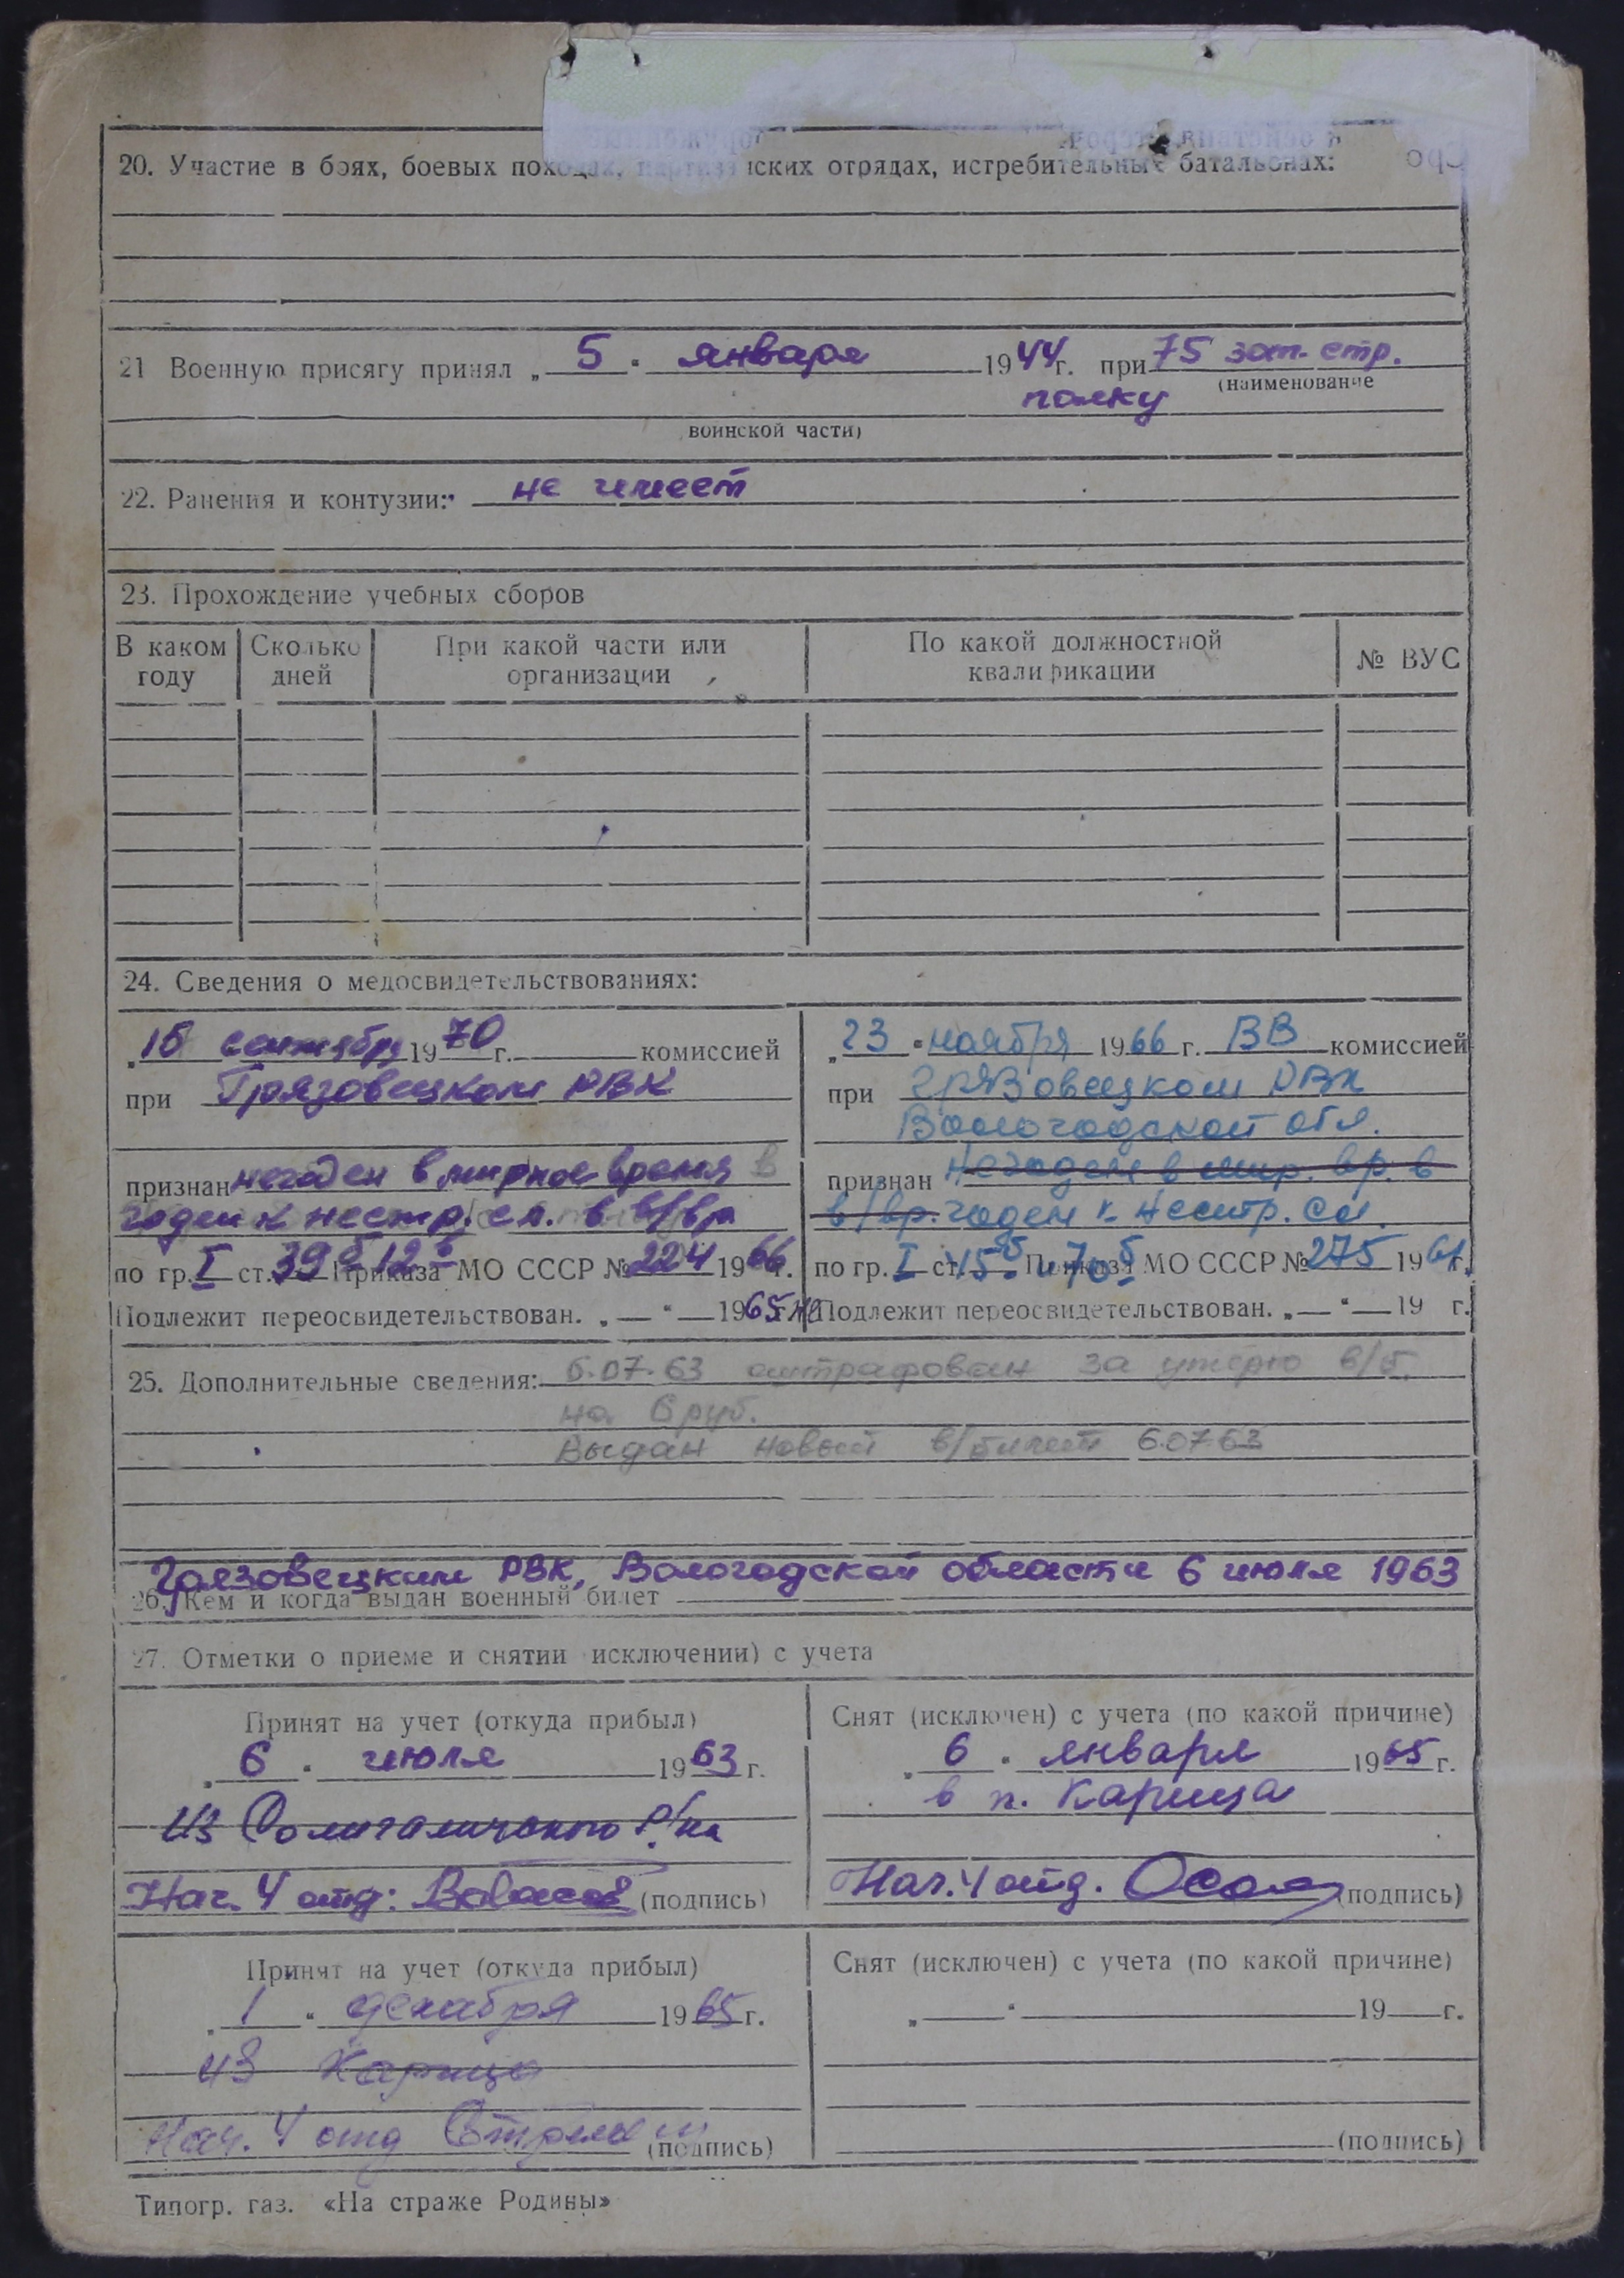 20. Участие в боях, боевых походах, партизанских отрядах, истребительных батальонах:
21 Военную присягу принял „ 5 " января 1944 г. при 75 зап. стр.
(наименование
полку
воинской части)
22. Ранения и контузии: не имеет
23. Прохождение учебных сборов
В каком году | Сколько дней | При какой части или организации | По какой должностной квалификации | № ВУС
24. Сведения о медосвидетельствованиях:
„ 15 сентября 1970 г. комиссией
при Грязовецком РВК
признан негоден в мирное время в
годен к нестр. сл. в в/вр
по гр. I ст. 39б 12б Приказа МО СССР № 224 1966 г.
Подлежит переосвидетельствован. „ — " — 1965 г.
„ 23 " ноября 1966 г. ВВ комиссией
при Грязовецком РВК
Вологодской обл.
признан Негоден в мир. вр. в
в/вр. годен к нестр. сл.
по гр. I ст. 15б и 70б Приказа МО СССР № 275 1961 г.
Подлежит переосвидетельствован. „ — " — 19 г.
25. Дополнительные сведения: 6.07.63 оштрафован за утерю в/б.
на 6 руб.
Выдан новый в/билет 6.07.63
Грязовецким РВК, Вологодской области 6 июля 1963
26. Кем и когда выдан военный билет
27. Отметки о приеме и снятии исключении) с учета
Принят на учет (откуда прибыл)
„ 6 " июля 1963 г.
из Солигаличского р/на
Нач. 4 отд: (подпись)
Снят (исключен) с учета (по какой причине)
„ 6 " января 1965 г.
в п. Карица
Нач. 4 отд. (подпись)
Принят на учет (откуда прибыл)
„ 1 " декабря 1965 г.
из Карицы
Нач. 4 отд (подпись)
Снят (исключен) с учета (по какой причине)
„ — " — 19 — г.
(подпись)
Типогр. газ. «На страже Родины»